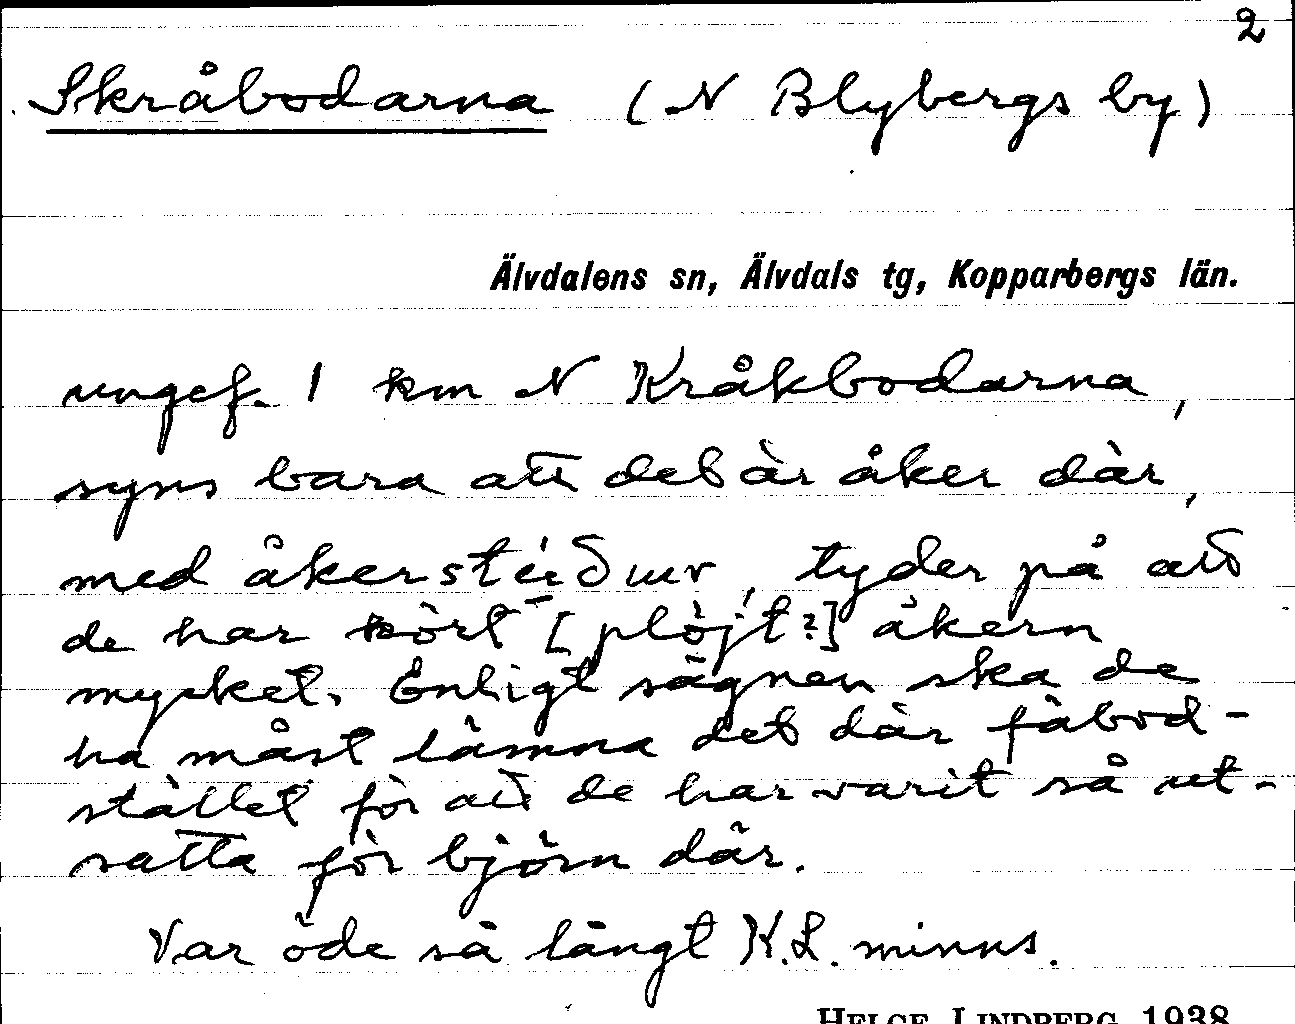 2
Skråbodarna (N Blybergs by)
Älvdalens sn, Älvdals tg, Kopparbergs län.
ungef. 1 km N Kråkbodarna,
syns bara att det är åker där,
med åker tyder på att
de har kört [plöjt?] åkern
mycket. Enligt sägnen ska de
ha måst lämna det där fäbod-
stället för att de har varit så ut-
satta för björn där.
Var öde så långt K.L. minns.
HELGE LINDBERG 1938